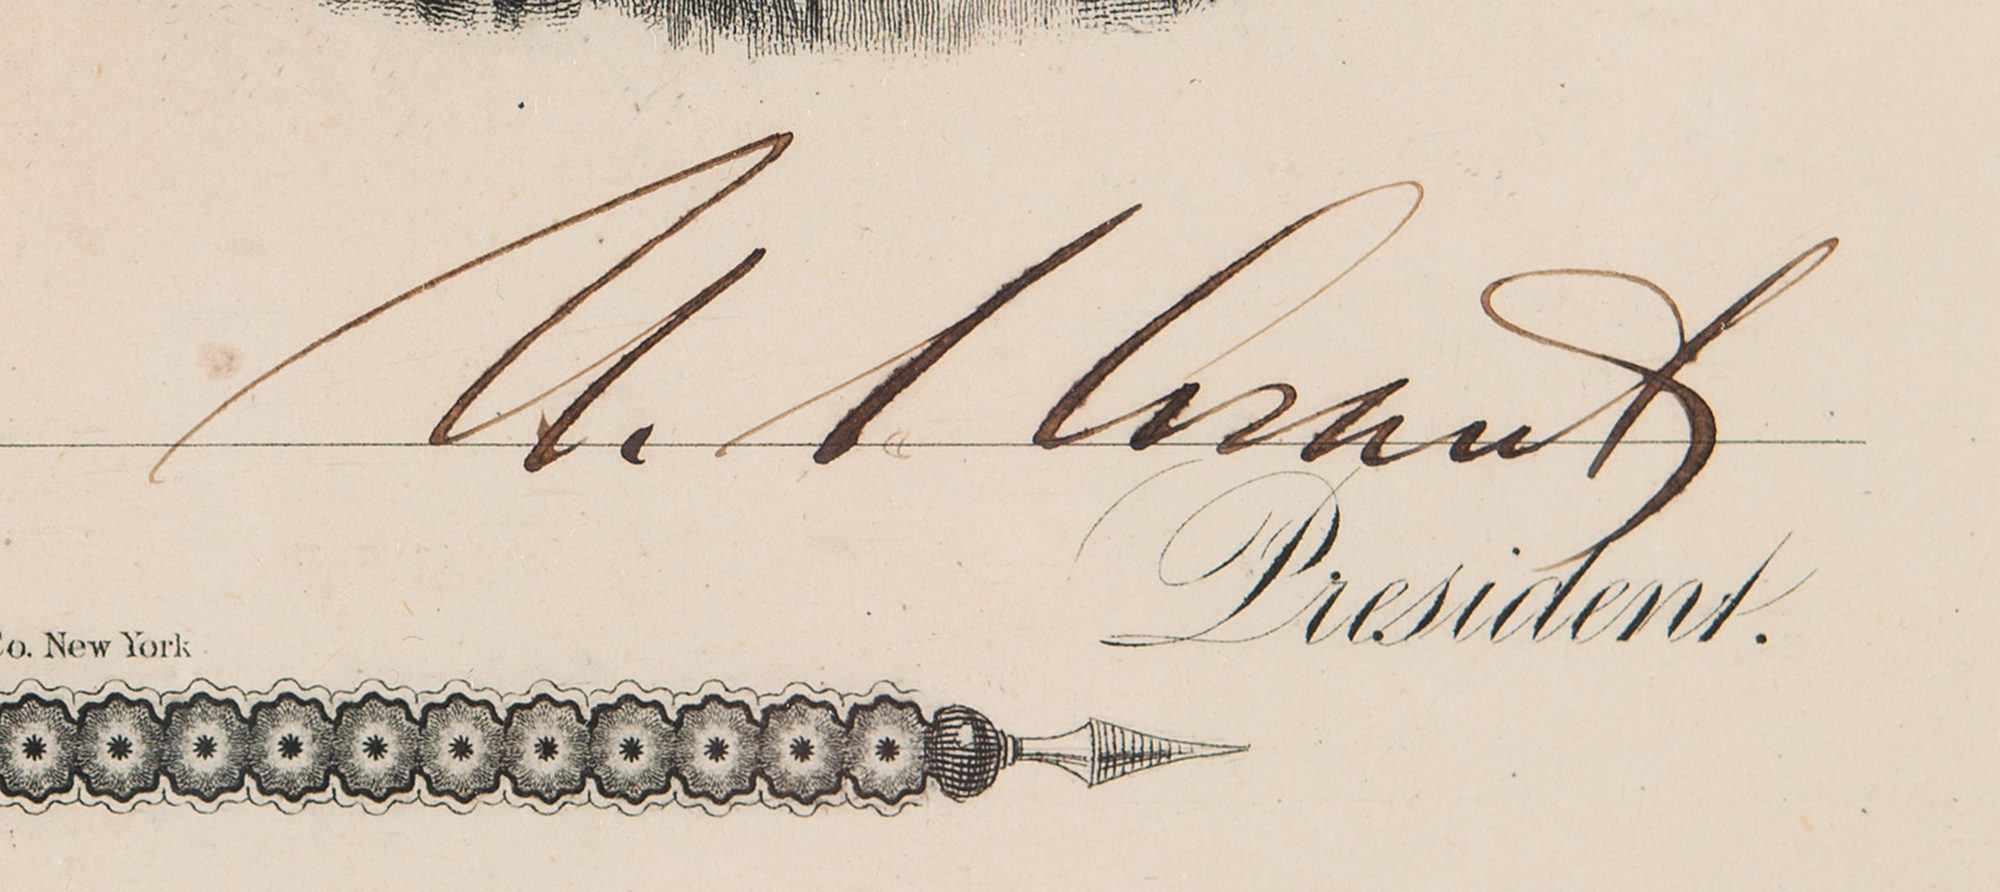 U. S Grant
President.
Co. New York